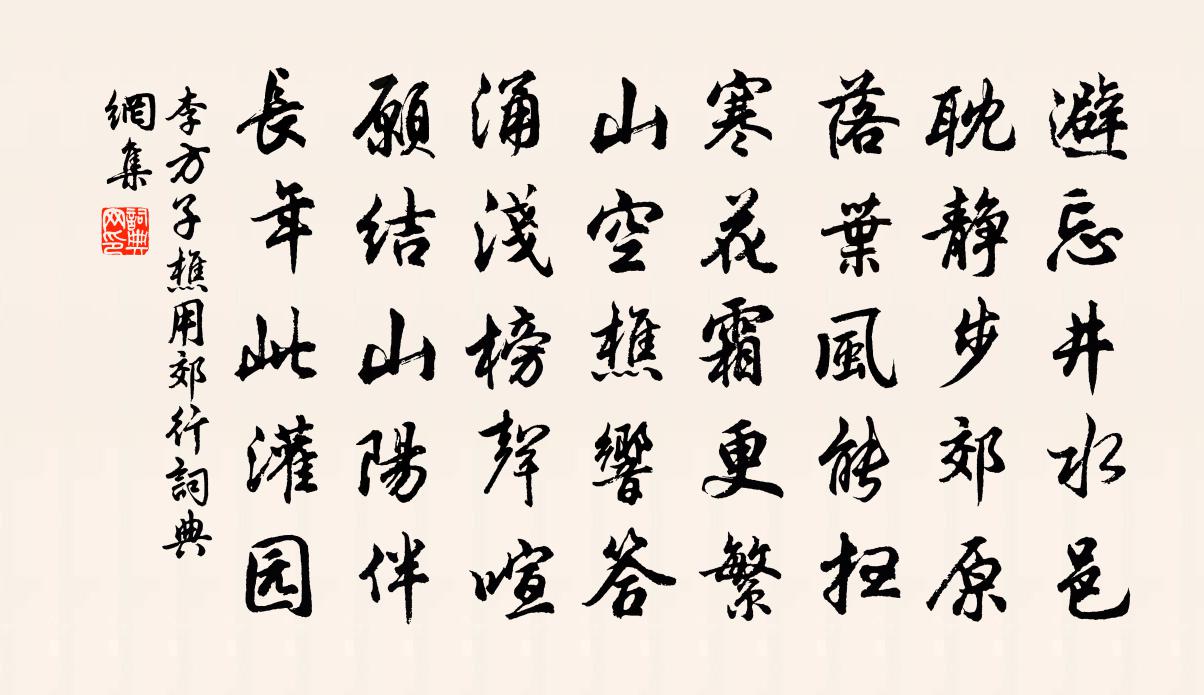 避忘井水邑
耽静步郊原
落葉風能扫
寒花霜更繁
山空樵響答
涌淺榜聲喧
願結山陽伴
長年此灌园
李方子樵用郊行詞典
網集
詞典
网印